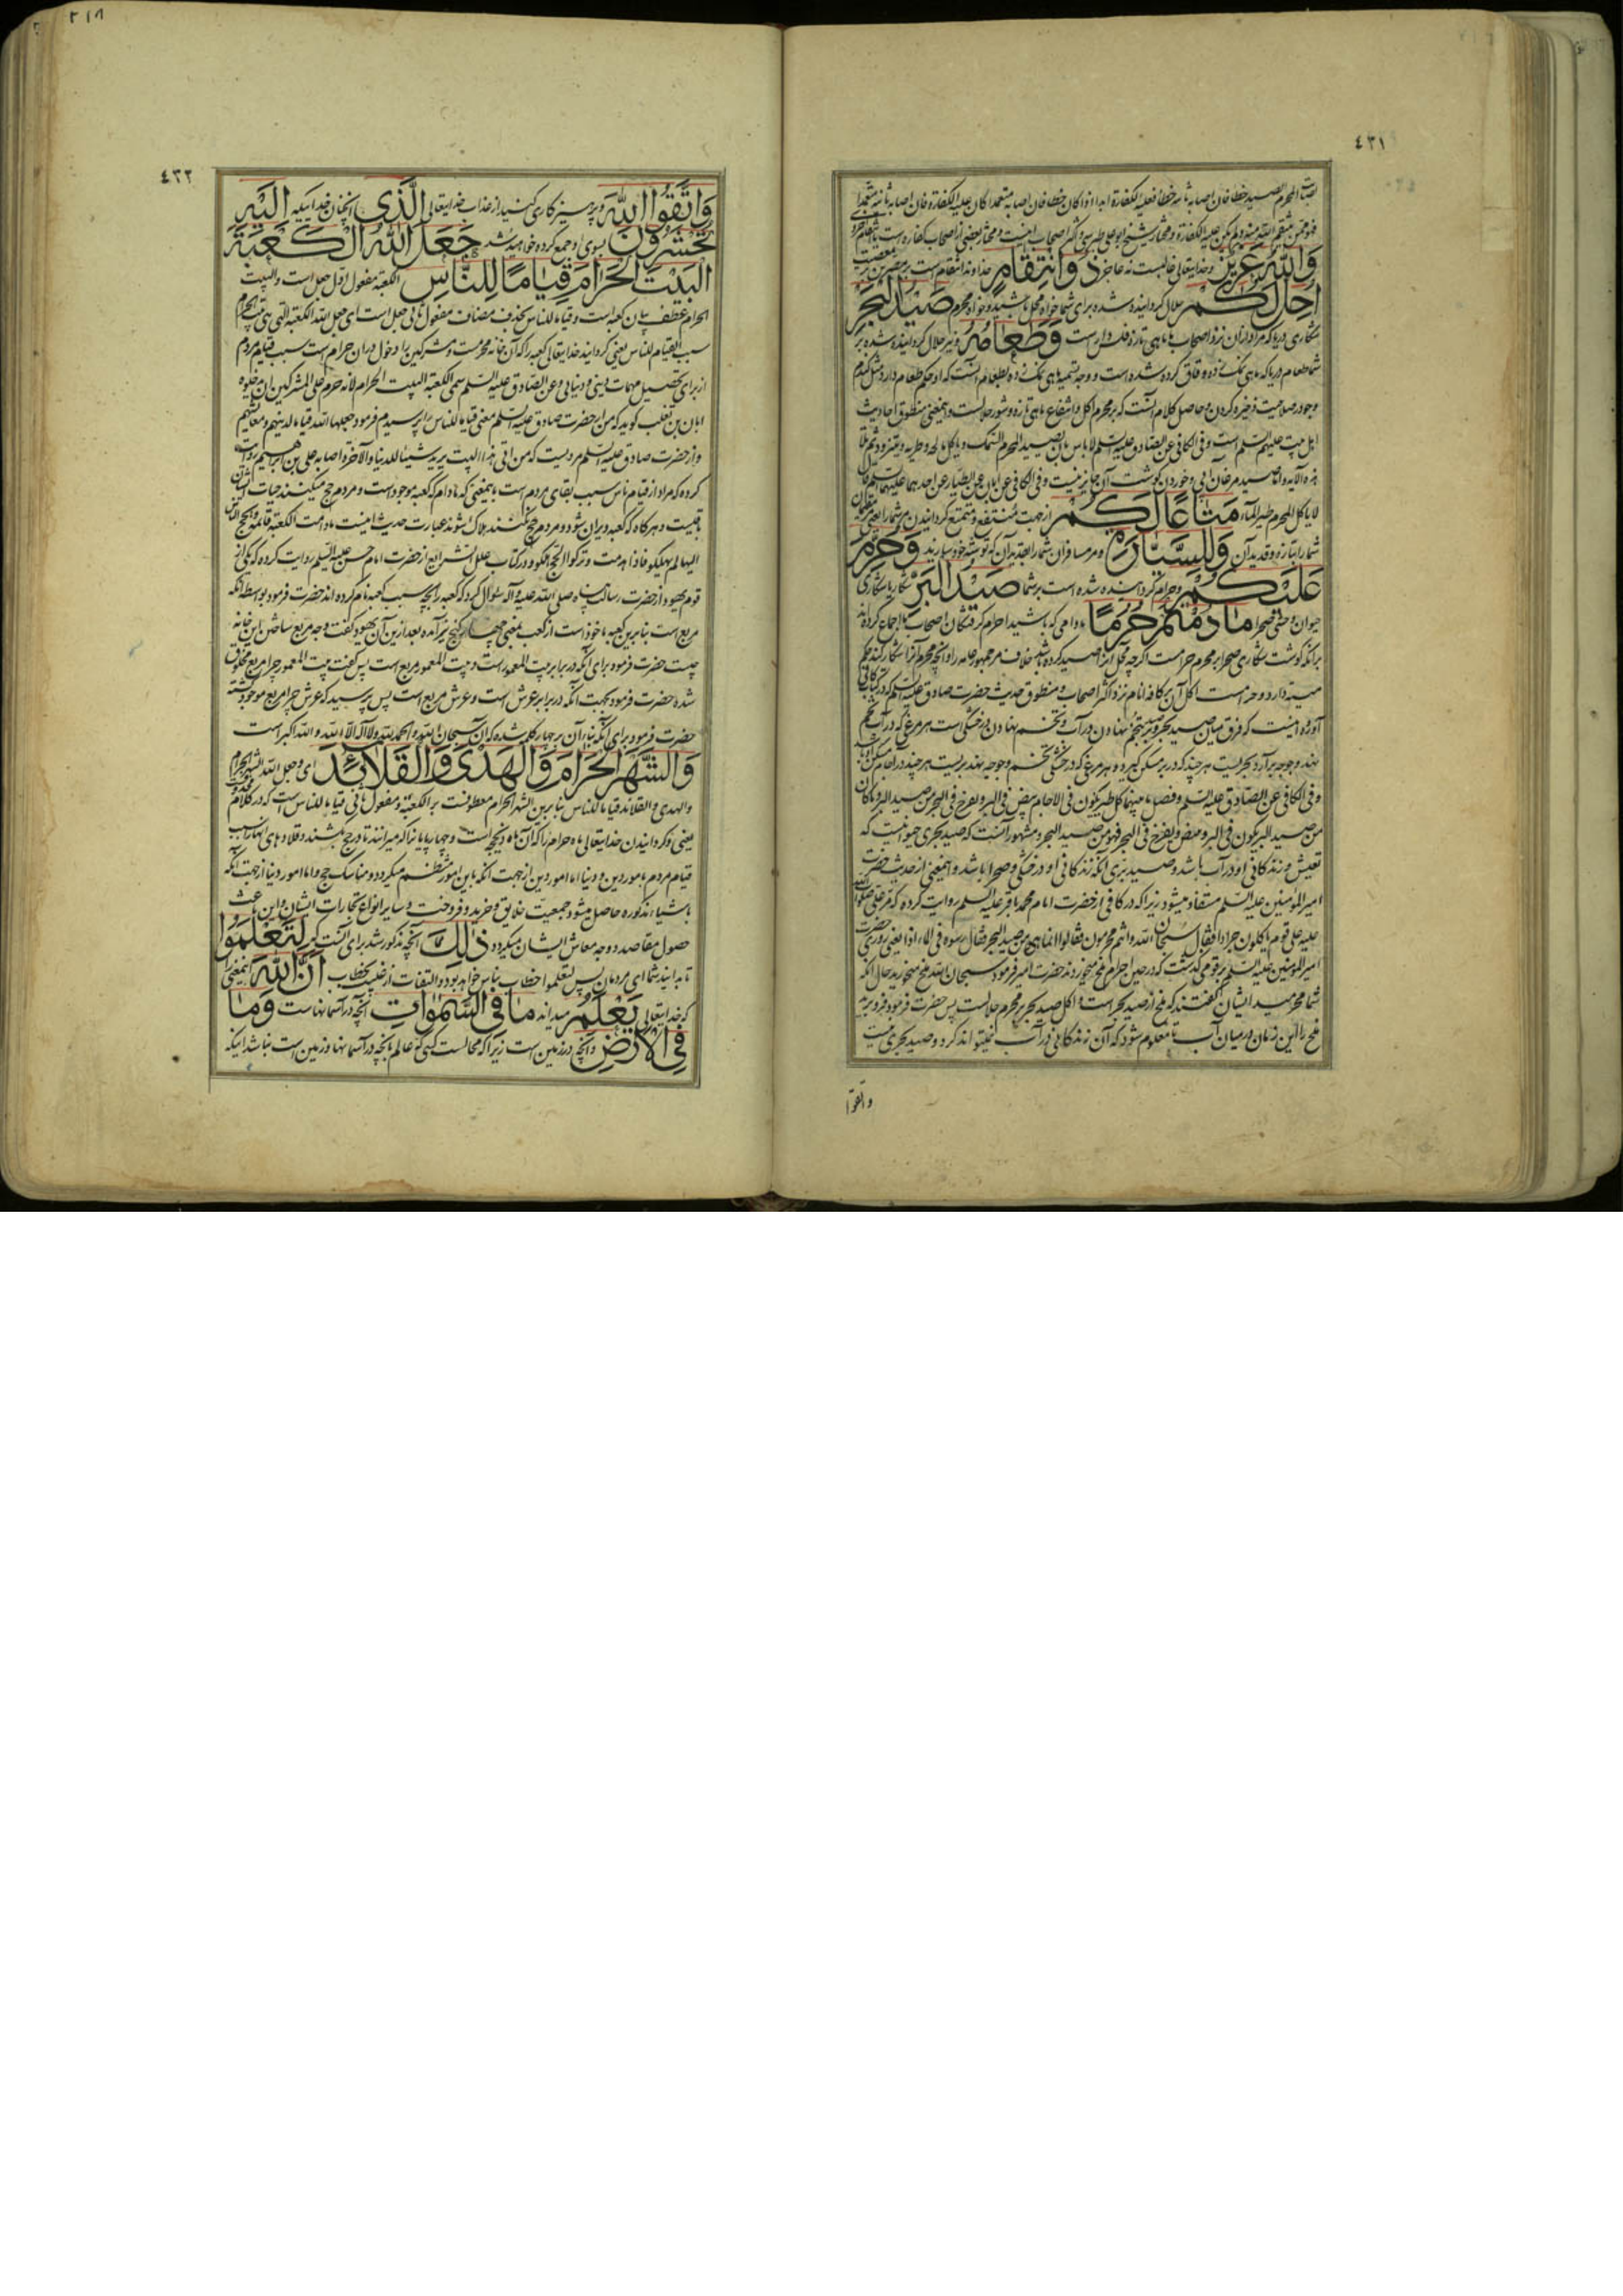 ٤٣١
اصاب المحرم الصید خطا فان اصابه ثانیة خطا فعلیه الکفارة ابدا اذا کان خطا فان اصابه متعمدا کان علیه الکفارة فان اصابه ثانیة متعمدا
فهو ممن ینتقم الله منه ولم یکن علیه الکفارة و مختار شیخ ابو علی طبرسی و اکثر اصحاب اینست و مختار بعضی از اصحاب کفاره است
وَاللَّهُ عَزِیزٌ و خدایتعالی غالبست نه عاجز ذُو انْتِقَامٍ خداوند انتقام است بر مصرین بر معصیت
أُحِلَّ لَكُمْ حلال گردانیده شده برای شما خواه محل باشید و خواه محرم صَیْدُ الْبَحْرِ
شکاری دریا که مراد از آن نزد اصحاب ما ماهی تازه فلس دار است وَطَعَامُهُ و نیز حلال گردانیده شده بر
شما طعام دریا که ماهی نمک زده و قاق کرده شده است و وجه تسمیه ماهی نمک زده بطعام آنست که او حکم طعام دارد مثل گندم
و جو در صلاحیت ذخیره کردن و حاصل کلام آنست که بر محرم اکل و انتفاع ماهی تازه و شور حلالست و اینمعنی منطوق احادیث
اهل بیت علیهم السلم است و فی الکافی عن الصادق علیه السلم لا باس بان یصید المحرم السمک و یاکل مالحه و طریه و یتزود ثم تلا
هذه الآیه و اما صید مرغان آبی و خوردن گوشت آن جایز نیست و فی الکافی عن ابان عن الطیار عن احدهما علیهما السلم قال
لا یاکل المحرم طیر الماء مَتَاعًا لَكُمْ از جهت منتفع و متمتع گردانیدن مر شما را یعنی مقیمان
شما را بتازه و قدید آن وَلِلسَّیَّارَةِ و مر مسافران شما را بقدید آن که توشه خود سازند وَحُرِّمَ
عَلَیْكُمْ و حرام گردانیده شده است بر شما صَیْدُ الْبَرِّ شکار یا شکاری
حیوان وحشی صحرا مَا دُمْتُمْ حُرُمًا مادامی که باشید احرام گرفتگان اصحاب ما اجماع کرده اند
برانکه گوشت شکاری صحرا بر محرم حرامست اگر چه محل انرا صید کرده باشد خلاف مر جمهور عامه را و انچه محرم آنرا شکار کند حکم
میته دارد و حرامست اکل آن بر کافه انام نزد اکثر اصحاب و منطوق حدیث حضرت صادق علیه السلم که در کتاب کافی
آورده اینست که فرق میان صید بحر و بر بتخم نهادن در آب و تخم نهادن در خشکی است هر مرغی که در آب تخم
نهد و جوجه برآرد بحریست هر چند که در بر مسکن گیرد و هر مرغی که در خشکی تخم و جوجه نهد بریست هر چند در آجام مسکن او باشد
و فی الکافی عن الصادق علیه السلم و فصل ما بینهما کل طیر یکون فی الآجام یبیض فی البر و یفرخ فی البر فهو من صید البر و ما کان
من صید البر یکون فی البر و یبیض و یفرخ فی البحر فهو من صید البحر و مشهور آنست که صید بحری حیوانیست که
تعیش و زندگانی او در آب باشد و صید بری آنکه زندگانی او در خشکی و صحرا باشد و اینمعنی از حدیث حضرت
امیر المؤمنین علیه السلم مستفاد میشود زیرا که در کافی از حضرت امام محمد باقر علیه السلم روایت کرده که مر علی صلوات الله
علیه علی قوم یاکلون جرادا فقال سبحان الله و انتم محرمون فقالوا انما هی من صید البحر فقال ارموه فی الماء اذا یعنی روزی حضرت
امیر المؤمنین علیه السلم بر قومی گذشت که در حین احرام ملخ میخوردند حضرت امیر فرمود سبحان الله ملخ میخورید حال انکه
شما محرمید ایشان گفتند که ملخ از صید بحر است و اکل صید بحر بر محرم حلالست پس حضرت فرمود فرو برید
ملخ را این زمان در میان آب تا معلوم شود که آن زندگانی در آب نمیتواند کرد و صید بحری نیست
واتقوا
٢١٨
٤٣٢
وَاتَّقُوا اللَّهَ و پرهیزکاری کنید از عذاب خدایتعالی الَّذِی انچنان خداییکه إِلَیْهِ
تُحْشَرُونَ بسوی او جمع کرده خواهید شد جَعَلَ اللَّهُ الْكَعْبَةَ
الْبَیْتَ الْحَرَامَ قِیَامًا لِلنَّاسِ الکعبة مفعول اول جعل است و البیت
الحرام عطف بیان کعبه است و قیاما للناس بحذف مضاف مفعول ثانی جعل است ای جعل الله الکعبة التی هی البیت الحرام
سبب القیام للناس یعنی گردانید خدایتعالی کعبه را که آن خانه محرمست و مشرکین را دخول در آن حرام است سبب قیام مردم
از برای تحصیل مهمات دینی و دنیایی و عن الصادق علیه السلم سمی الکعبة البیت الحرام لانه حرم علی المشرکین ان یدخلوه
ابان بن تغلب گوید که من از حضرت صادق علیه السلم معنی قیاما للناس را پرسیدم فرمود جعلها الله قیاما لدینهم و معایشهم
و از حضرت صادق علیه السلم مرویست که من اتی هذا البیت یرید شیئا للدنیا و الآخرة اصابه علی بن ابراهیم روایت
کرده که مراد از قیام ناس سبب بقای مردم است باینمعنی که مادام که کعبه موجود است و مردم حج میکنند حیات ایشان
باقیست و هر گاه که کعبه ویران شود و مردم حج نکنند هلاک شوند عبارت حدیث اینست ما دامت الکعبة قائمة و یحج الناس
الیها لم یهلکوا فاذا هدمت و ترکوا الحج هلکوا و در کتاب علل الشرایع از حضرت امام حسن علیه السلم روایت کرده که یکی از
قوم یهود از حضرت رسالت پناه صلی الله علیه و آله سئوال کرد که کعبه را بچه سبب کعبه نام کرده اند حضرت فرمود بواسطه انکه
مربع است بنا برین کعبه ماخوذ است از کعب بمعنی چهار کنج نیز آمده بعد ازین آن یهود گفت وجه مربع ساختن این خانه
چیست حضرت فرمود برای آنکه در برابر بیت المعمور است و بیت المعمور مربع است پس گفت بیت المعمور چرا مربع مخلوق
شده حضرت فرمود بجهت آنکه در برابر عرش است و عرش مربع است پس پرسید که عرش چرا مربع موجود گشته
حضرت فرمود برای آنکه بناء آن بر چهار کلمه شده که ان سبحان الله و الحمد لله و لا اله الا الله و الله اکبر است
وَالشَّهْرَ الْحَرَامَ وَالْهَدْیَ وَالْقَلَائِدَ ای و جعل الله الشهر الحرام
و الهدی و القلائد قیاما للناس بنا برین الشهر الحرام معطوفست بر الکعبة و مفعول ثانی قیاما للناس است که در کلام
یعنی و گردانیدن خدایتعالی ماه حرام را که آن ماه ذیحجه است و چهارپایانرا که میرانند تا در حج بکشند و قلاده های انها را سبب
قیام مردم بامور دین و دنیا اما امور دین از جهت آنکه باین امور منتظم میگردد مناسک حج و اما امور دنیا از جهت آنکه
باشیاء مذکوره حاصل میشود جمعیت خلایق و خرید و فروخت و سایر انواع تجارات ایشان و این باعث
حصول مقاصد و وجه معاش ایشان میگردد ذَٰلِكَ آنچه مذکور شد برای آنست که لِتَعْلَمُوا
تا بدانید شما ای مردمان پس لتعلموا خطاب بناس خواهد بود و التفات از غیبت بخطاب أَنَّ اللَّهَ اینمعنی را
که خدایتعالی یَعْلَمُ میداند مَا فِی السَّمٰوَاتِ آنچه در آسمانهاست وَمَا
فِی الْأَرْضِ و آنچه در زمین است زیرا که محالست کسی که عالم بآنچه در آسمانها و زمین است نباشد اینکه